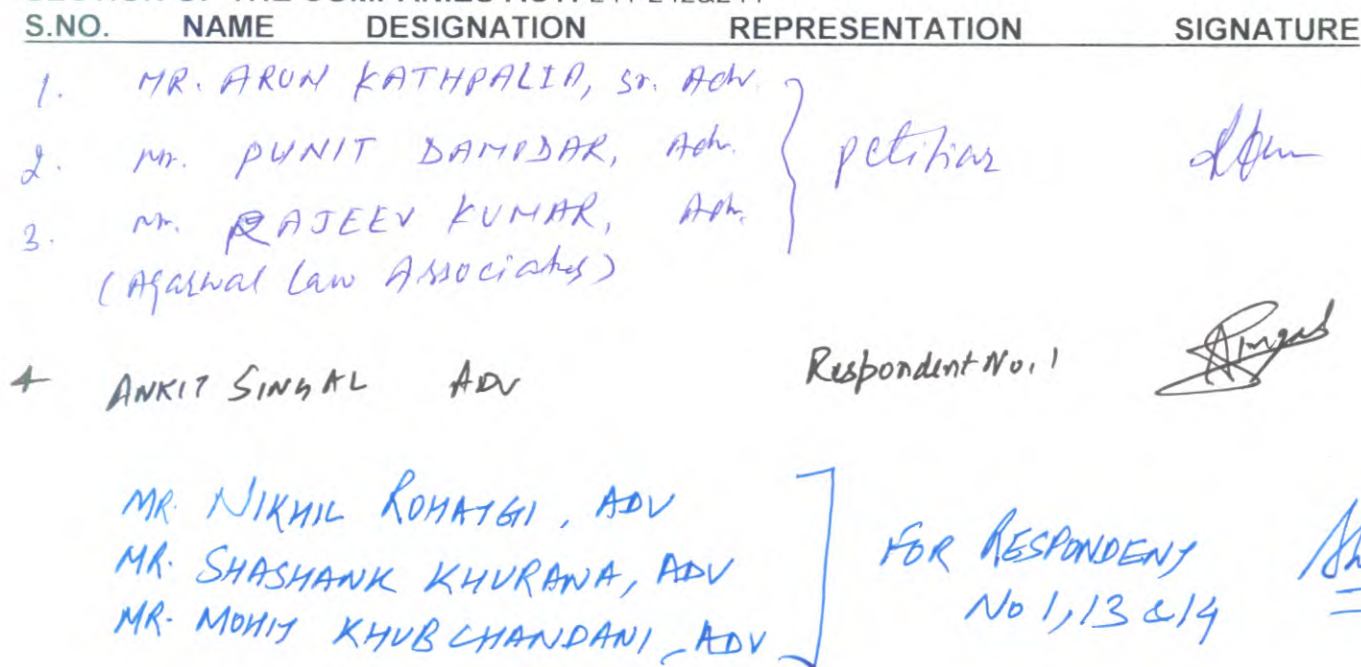 S.NO. NAME DESIGNATION REPRESENTATION SIGNATURE
1. MR. ARUN KATHPALIA, Sr. Adv.
2. Mr. PUNIT DAMODAR, Adv. petitioner
3. Mr. RAJEEV KUMAR, Adv.
(Agarwal Law Associates)
4 ANKIT SINGAL ADV Respondent No. 1
MR. NIKHIL ROHATGI, ADV
MR. SHASHANK KHURANA, ADV FOR RESPONDENT
MR. MOHIT KHUBCHANDANI, ADV No 1, 13 & 14